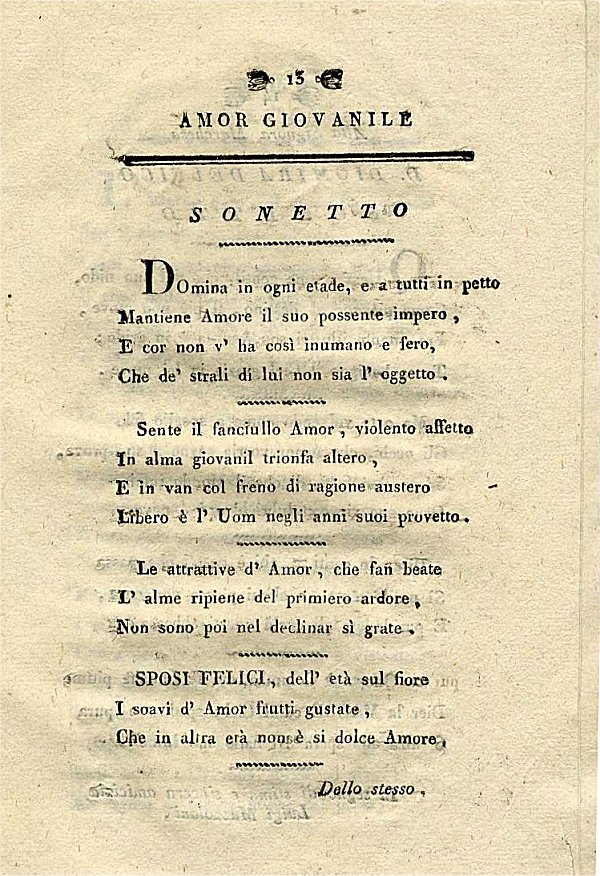 15
AMOR GIOVANILE
SONETTO
DOmina in ogni etade, e a tutti in petto
Mantiene Amore il suo possente impero,
E cor non v' ha così inumano e fero,
Che de' strali di lui non sia l' oggetto.
Sente il fanciullo Amor, violento affetto
In alma giovanil trionfa altero,
E in van col freno di ragione austero
Libero è l' Uom negli anni suoi provetto.
Le attrattive d' Amor, che fan beate
L' alme ripiene del primiero ardore,
Non sono poi nel declinar sì grate.
SPOSI FELICI, dell' età sul fiore
I soavi d' Amor frutti gustate,
Che in altra età non è si dolce Amore.
Dello stesso.